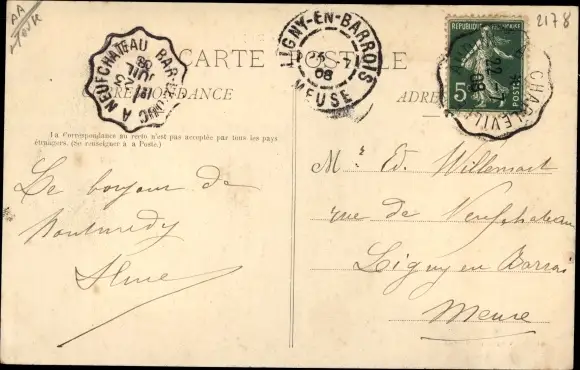 AA
2178
CARTE POSTALE
CORRESPONDANCE
ADRE
A NEUFCHATEAU BAR-LE-DUC
JUIL
08
LIGNY-EN-BARROIS
08
MEUSE
REPUBLIQUE FRANÇAISE
5
POSTES
CHARLEVILLE
22
08
La Correspondance au recto n'est pas acceptée par tous les pays
étrangers. (Se renseigner à la Poste.)
Le bonjour de
Montmédy
Mr. Ed. Willemart
rue de Neufchateau
Ligny en Barrois
Meuse